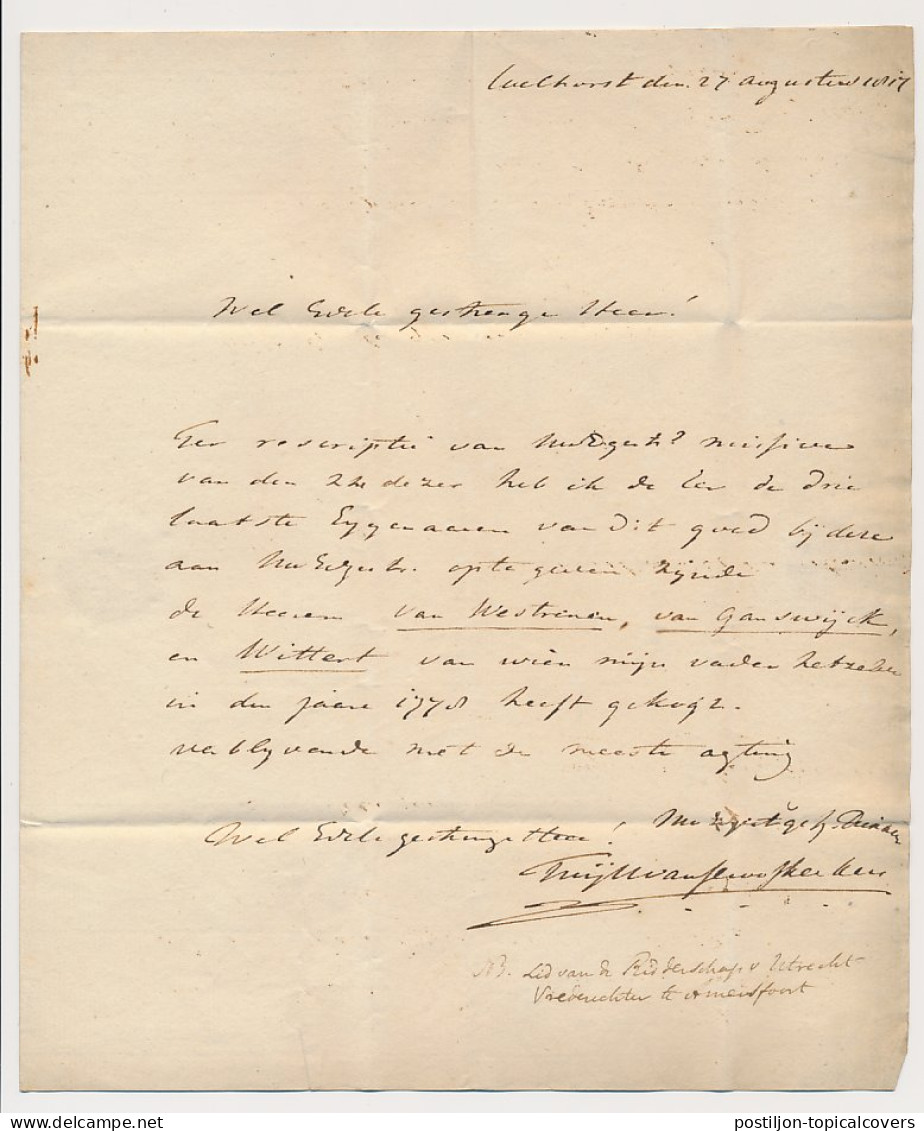 Coelhorst den 27 augustus 1817
Wel Edele gestrenge Heer!
Ter rescriptie van UwEdgestr. missive
van den 22 dezer heb ik de Eer de drie
laatste Eygenaaren van dit goed bij deze
aan UwEdgestr. op te geven zijnde
de Heeren van Westrenen, van Ganswijck,
en Wittert van wien mijn vader hetzelve
in den jaare 1778 heeft gekogt.
verblyvende met de meeste agting
Wel Edele gestrenge Heer!
Dienaar
NB. Lid van de Ridderschap v Utrecht
Vrederechter te Amersfoort
postiljon-topicalcovers